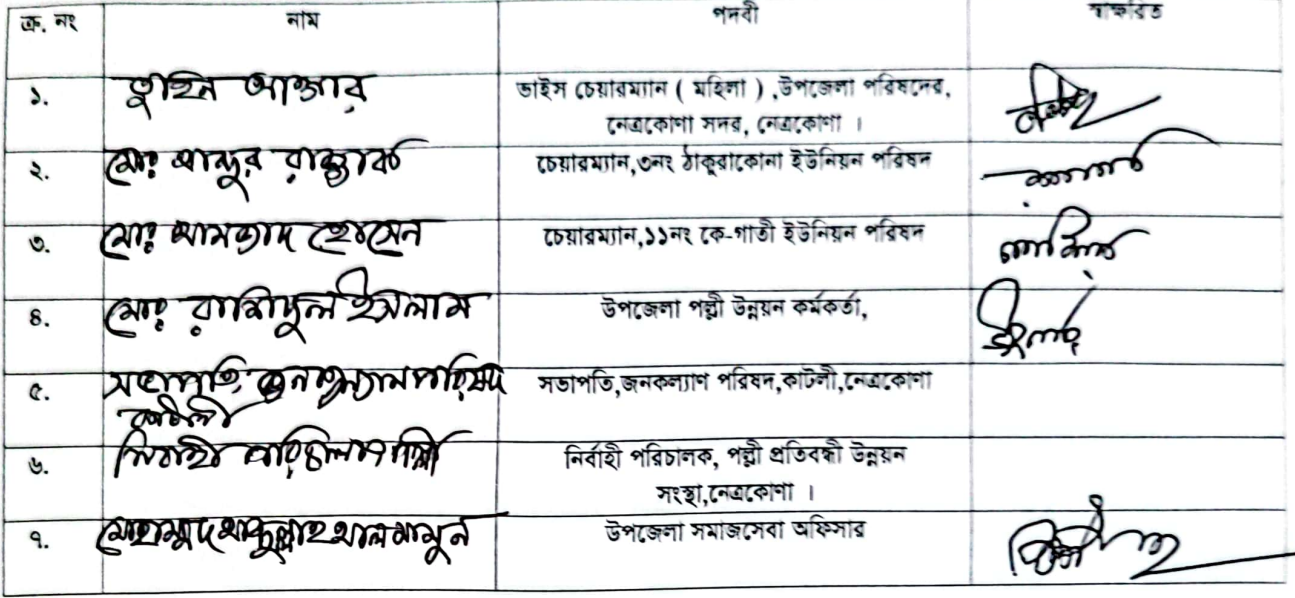 ক্র. নং নাম পদবী স্বাক্ষরিত
১. তুহিন আক্তার ভাইস চেয়ারম্যান ( মহিলা ) ,উপজেলা পরিষদের,
নেত্রকোণা সদর, নেত্রকোণা ।
২. মোঃ আব্দুর রাজ্জাক চেয়ারম্যান,৩নং ঠাকুরাকোনা ইউনিয়ন পরিষদ
৩. মোঃ আমজাদ হোসেন চেয়ারম্যান,১১নং কে-গাতী ইউনিয়ন পরিষদ
৪. মোঃ রাশিদুল ইসলাম উপজেলা পল্লী উন্নয়ন কর্মকর্তা,
৫. সভাপতি, জনকল্যাণ পরিষদ সভাপতি,জনকল্যাণ পরিষদ,কাটলী,নেত্রকোণা
কাটলী
৬. নির্বাহী পরিচালক পল্লী নির্বাহী পরিচালক, পল্লী প্রতিবন্ধী উন্নয়ন
সংস্থা,নেত্রকোণা ।
৭. মোহাম্মদ আব্দুল্লাহ আল মামুন উপজেলা সমাজসেবা অফিসার